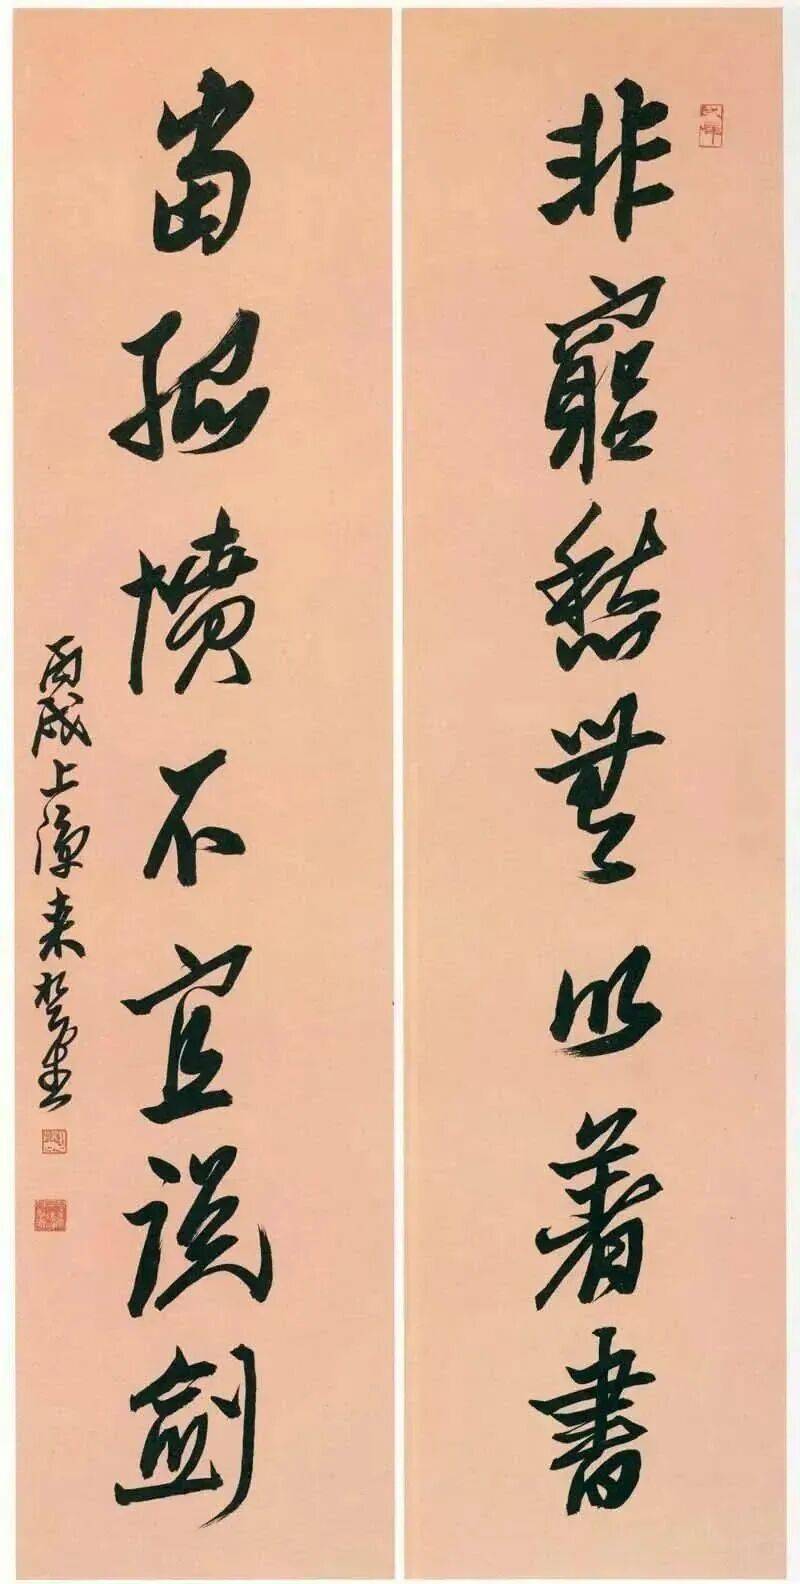 非窮愁無以著書
當孤憤不宜説劍
丙戌上来楚生